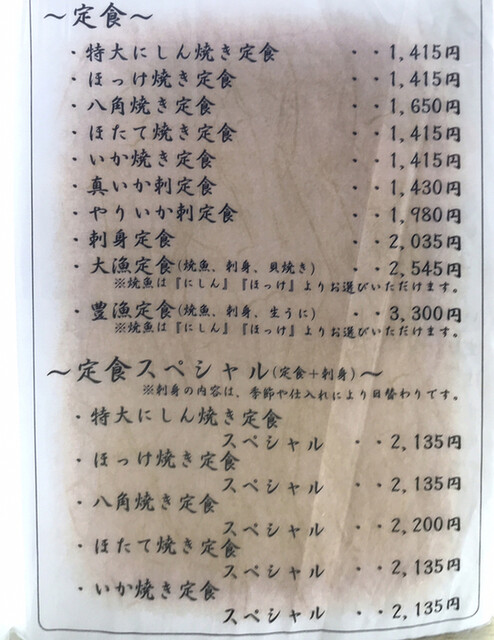 ～定食～
・特大にしん焼き定食 ・・1,415円
・ほっけ焼き定食 ・・1,415円
・八角焼き定食 ・・1,650円
・ほたて焼き定食 ・・1,415円
・いか焼き定食 ・・1,415円
・真いか刺定食 ・・1,430円
・やりいか刺定食 ・・1,980円
・刺身定食 ・・2,035円
・大漁定食(焼魚、刺身、貝焼き) ・・2,545円
※焼魚は『にしん』『ほっけ』よりお選びいただけます。
・豊漁定食(焼魚、刺身、生うに) ・・3,300円
※焼魚は『にしん』『ほっけ』よりお選びいただけます。
～定食スペシャル(定食+刺身)～
※刺身の内容は、季節や仕入れにより日替わりです。
・特大にしん焼き定食
スペシャル ・・2,135円
・ほっけ焼き定食
スペシャル ・・2,135円
・八角焼き定食
スペシャル ・・2,200円
・ほたて焼き定食
スペシャル ・・2,135円
・いか焼き定食
スペシャル ・・2,135円